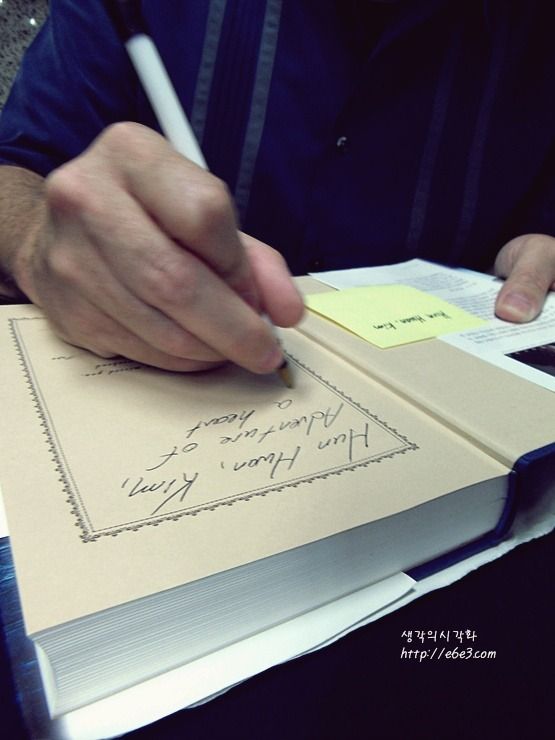 Hun Hwan, Kim,
Adventure of
a heart
Hun Hwan, Kim
생각의시각화
http://e6e3.com